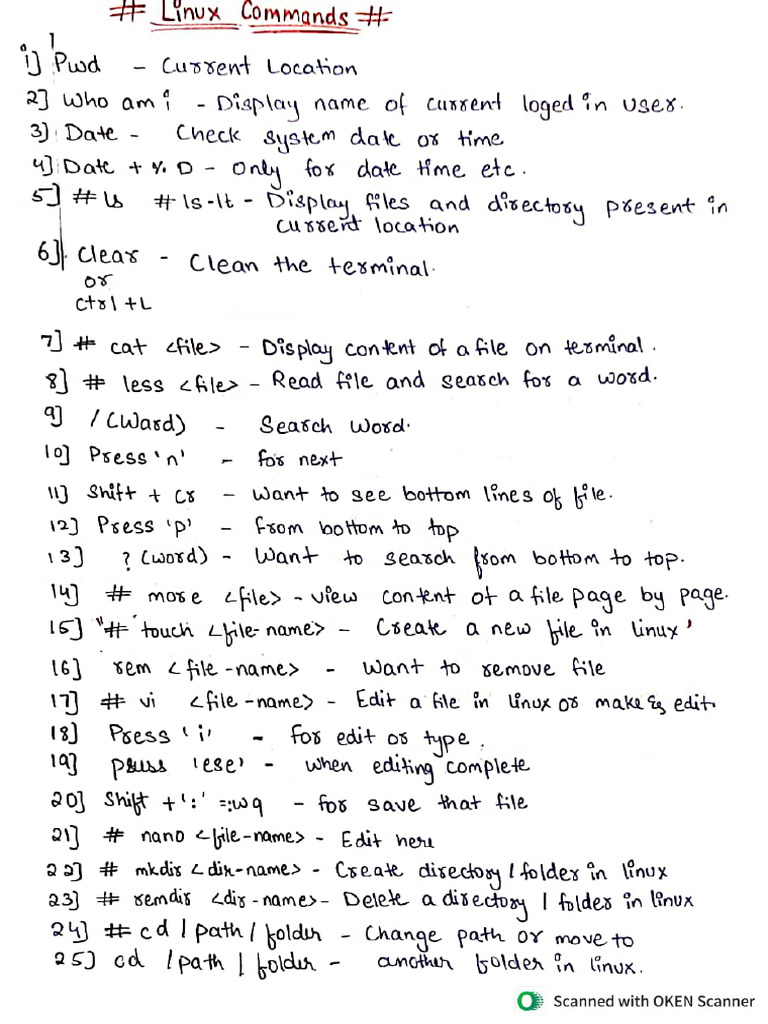 # Linux Commands #
1] Pwd - Current Location
2] Who am i - Display name of current loged in user.
3] Date - Check system date or time
4] Date + %D - Only for date time etc.
5] # ls # ls-lt - Display files and directory present in
current location
6] Clear - Clean the terminal.
or
Ctrl + L
7] # cat <file> - Display content of a file on terminal.
8] # less <file> - Read file and search for a word.
9] /(Word) - Search Word.
10] Press 'n' - for next
11] Shift + Cr - Want to see bottom lines of file.
12] Press 'p' - from bottom to top
13] ? (word) - Want to search from bottom to top.
14] # more <file> - view content of a file page by page.
15] "# 'touch <file-name> - Create a new file in linux'
16] rem <file-name> - Want to remove file
17] # vi <file-name> - Edit a file in linux or make & edit.
18] Press 'i' - for edit or type.
19] press 'ese' - when editing complete
20] Shift + ':' =:wq - for save that file
21] # nano <file-name> - Edit here
22] # mkdir <dir-name> - Create directory / folder in linux
23] # remdir <dir-name> - Delete a directory / folder in linux
24] # cd / path / folder - Change path or move to
25] cd / path / folder - another folder in linux.
Scanned with OKEN Scanner